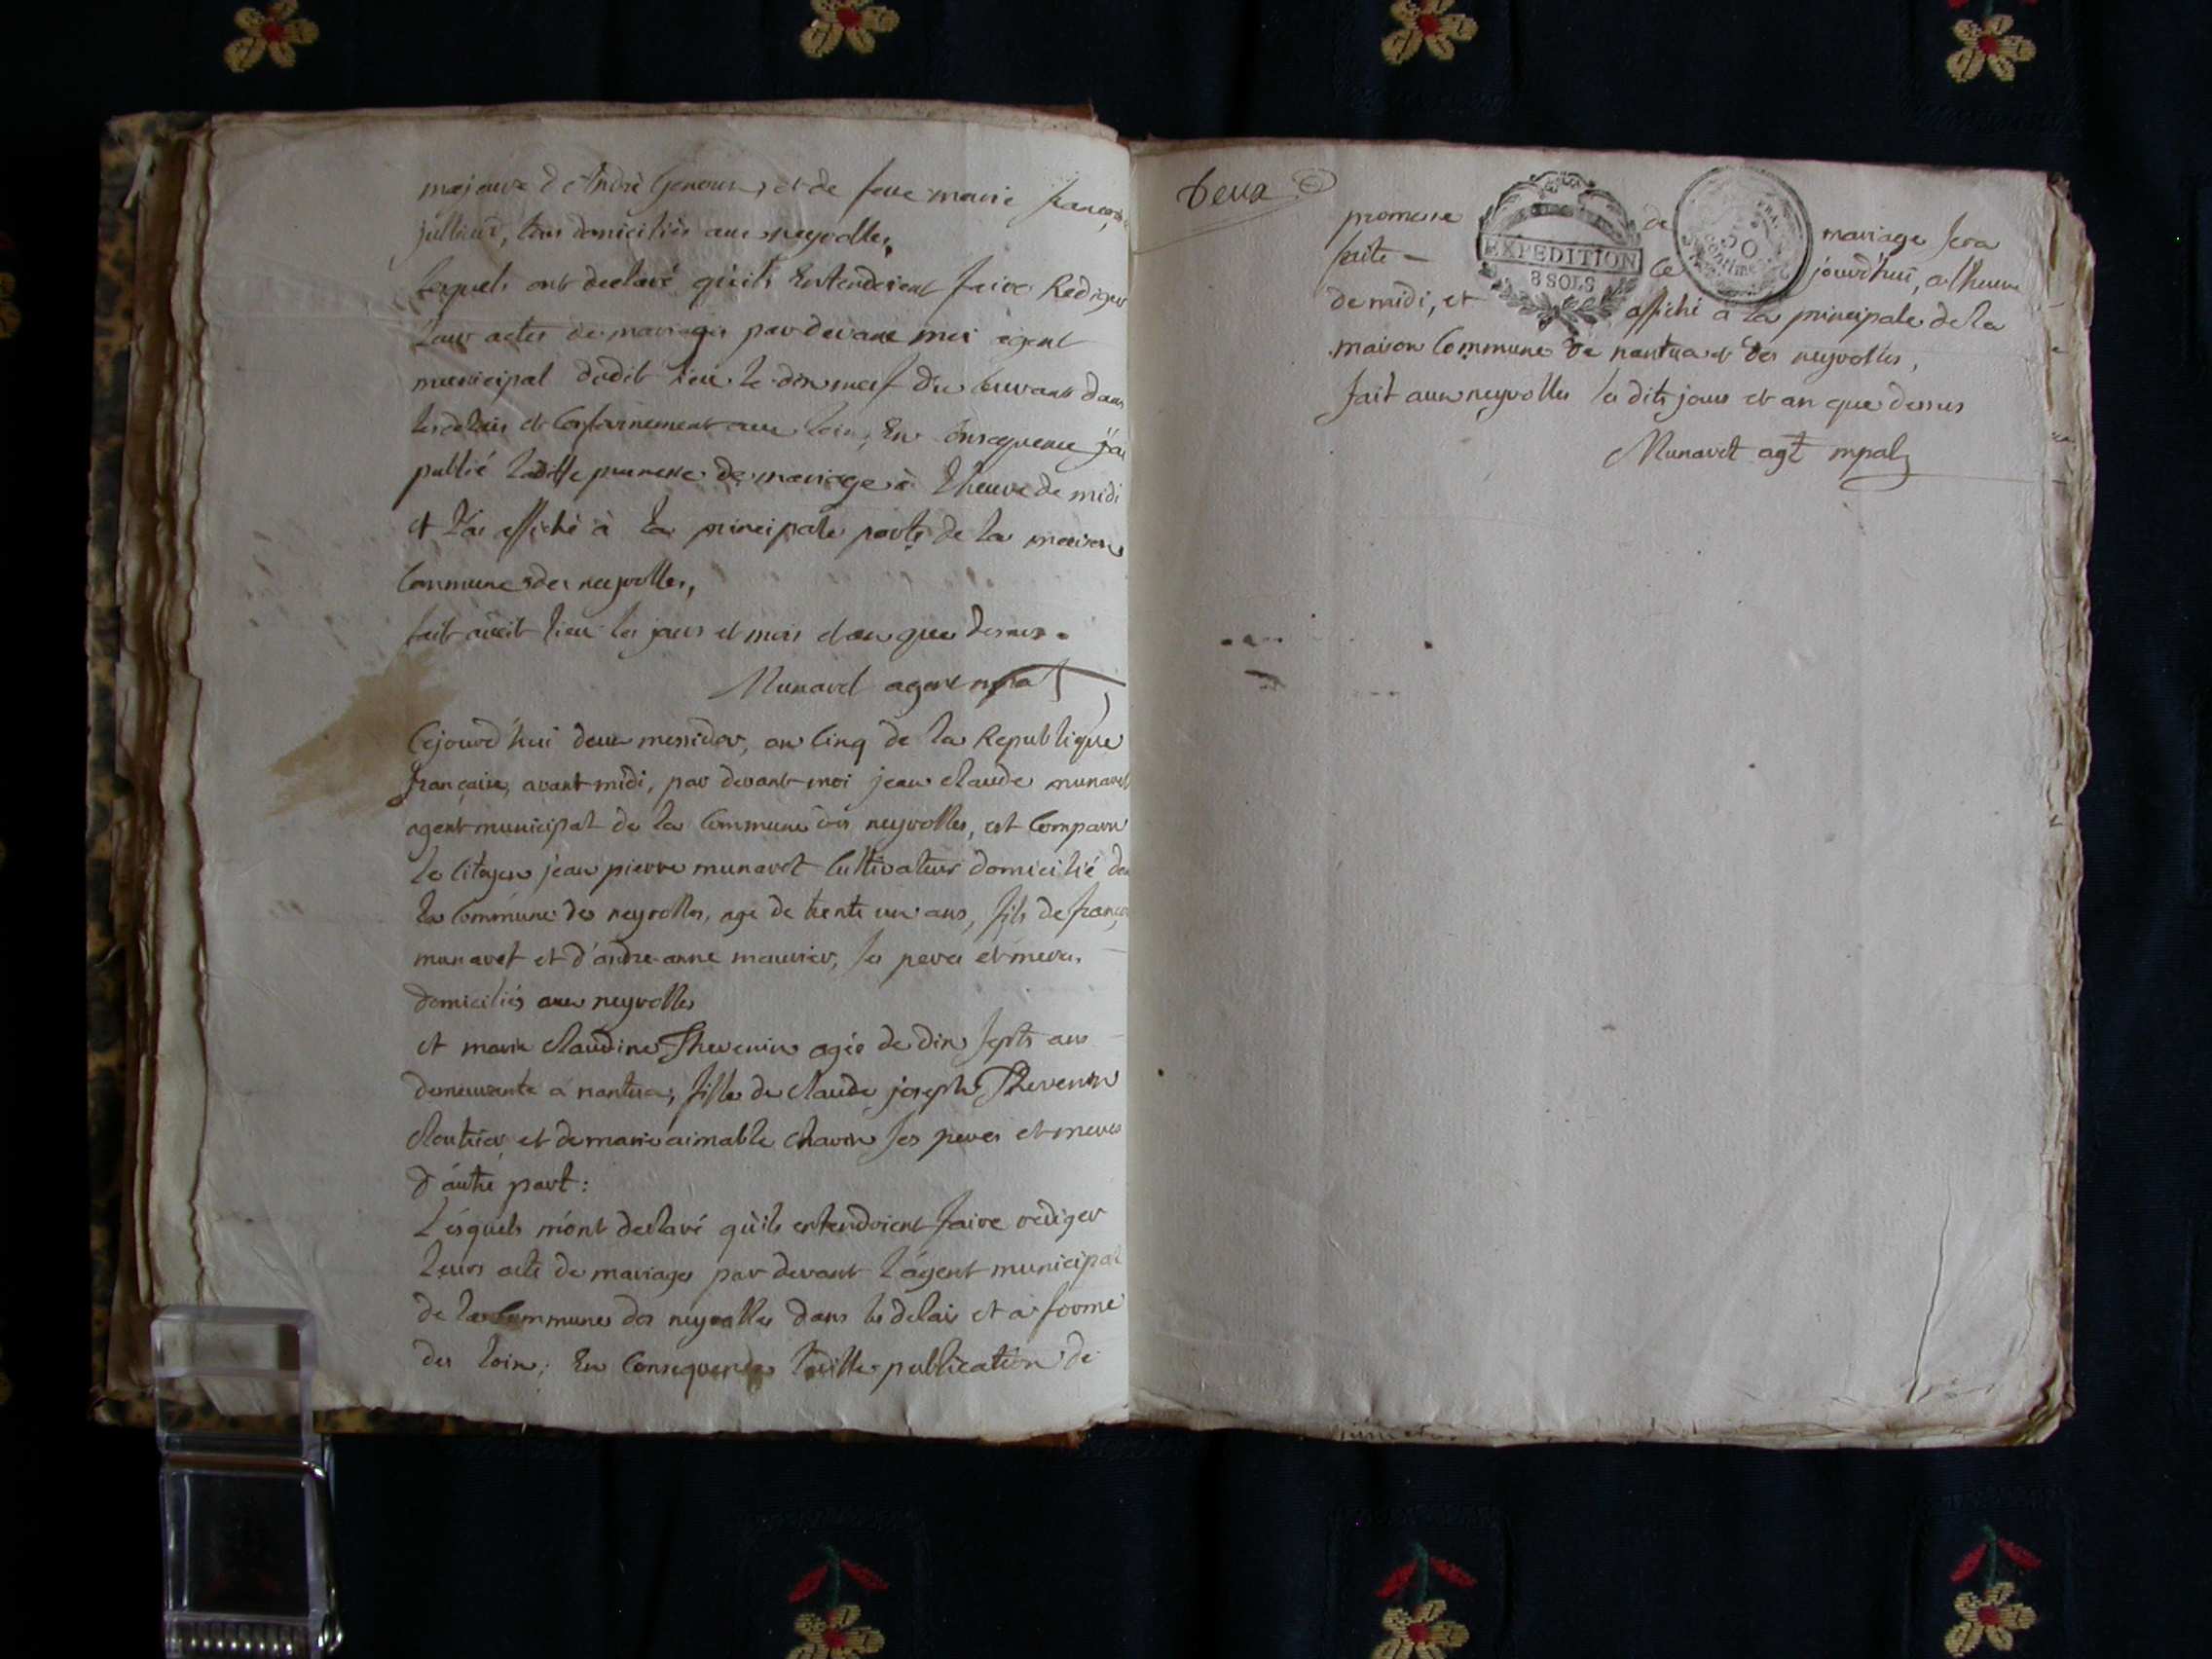 majeure d'André Genoux, et de feue marie françoise
jullierd, tous domiciliés aux neyrolles,
lesquels ont declaré qu'ils Entendoient faire Rediger
leurs actes de mariages par devant moi agent
municipal dudit lieu le dix neuf du Courant dans
les delais et Conformement aux loix, En Consequence j'ai
publié ladite promesse de mariage à l'heure de midi
et l'ai affiché à la principale porte de la maison
Commune des neyrolles,
fait audit lieu les jours et mois et an que dessus.
Munaret agent mpal
Cejourd'hui deux messidor, an Cinq de la Republique
française, avant midi, par devant moi jean claude munaret
agent municipal de la Commune des neyrolles, est Comparu
le Citoyen jean pierre munaret Cultivateur domicilié dans
la Commune des neyrolles, agé de trente un ans, fils de françois
munaret et d'andre-anne maurier, ses peres et meres
domiciliés aux neyrolles
et marie claudine Thevenin agée de dix septs ans
demeurante a nantua, fille de claude joseph Thevenin
cloutier et de marie aimable chavin ses peres et meres
d'autre part:
Lésquels m'ont declaré qu'ils entendoient faire rediger
leurs acte de mariages par devant l'ágent municipal
de la Commune des neyrolles dans les delais et a forme
des loix; En Consequence ladite publication de
Deux
promesse de mariage sera
faite ce jourd'hui, a l'heure
de midi, et affiché a la principale de la
maison Commune de nantua et des neyrolles,
fait aux neyrolles les dits jour et an que dessus
Munaret agt mpal
EXPEDITION
8 SOLS
50
centimes